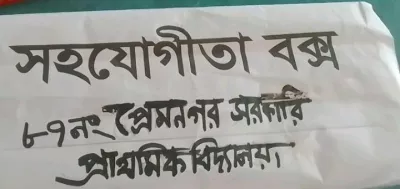 সহযোগীতা বক্স
৮৭নং প্রেমনগর সরকারি
প্রাথমিক বিদ্যালয়।